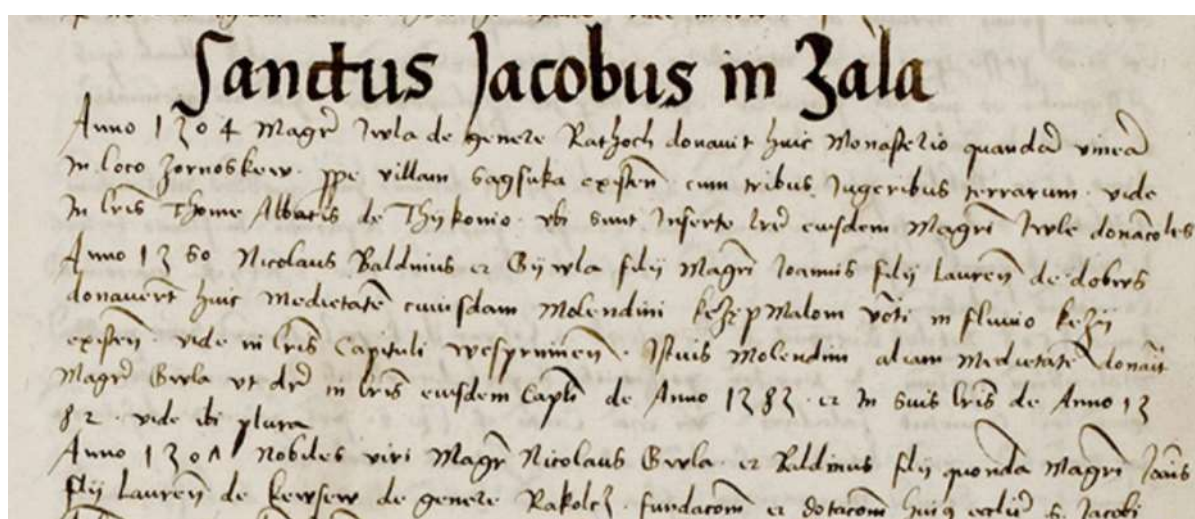 Sanctus Jacobus in Zala
Anno 1304 Magr̄ Iwla de genere Rathoch donauit huic Monasterio quandā vineā
In loco Zornoskew ꝓpe villam Sagsuka existen̄ cum tribus Iugeribus terrarum vide
In lr̄is Thome Abbatis de Thykonio vbi sunt Inserte lr̄e eiusdem Magr̄i Iwle donac̄oles
Anno 1360 Nicolaus Baldinus et Gywla filij Magr̄i Ioannis filij Lauren̄ de
donauer̄t huic Medietatē cuiusdam Molendini kezepMalom voc̄ti in fluuio kezij
existen̄ vide in lr̄is Capituli wespremien̄ Istius Molendini aliam Medietatē donāit
Magr̄ Gwla vt dr̄ in lr̄is eiusdem Capl̄i de Anno 1383 et In suis lr̄is de Anno 13
82 vide ibi plura
Anno Nobiles viri Magr̄ Nicolaus Gwla et Bldinus filij quondā Magr̄i Ioān̄is
filij Lauren̄ de kewsew de genere Rakolcz fundac̄om et dotac̄om huiꝰ eccl̄ie S. Iacobi